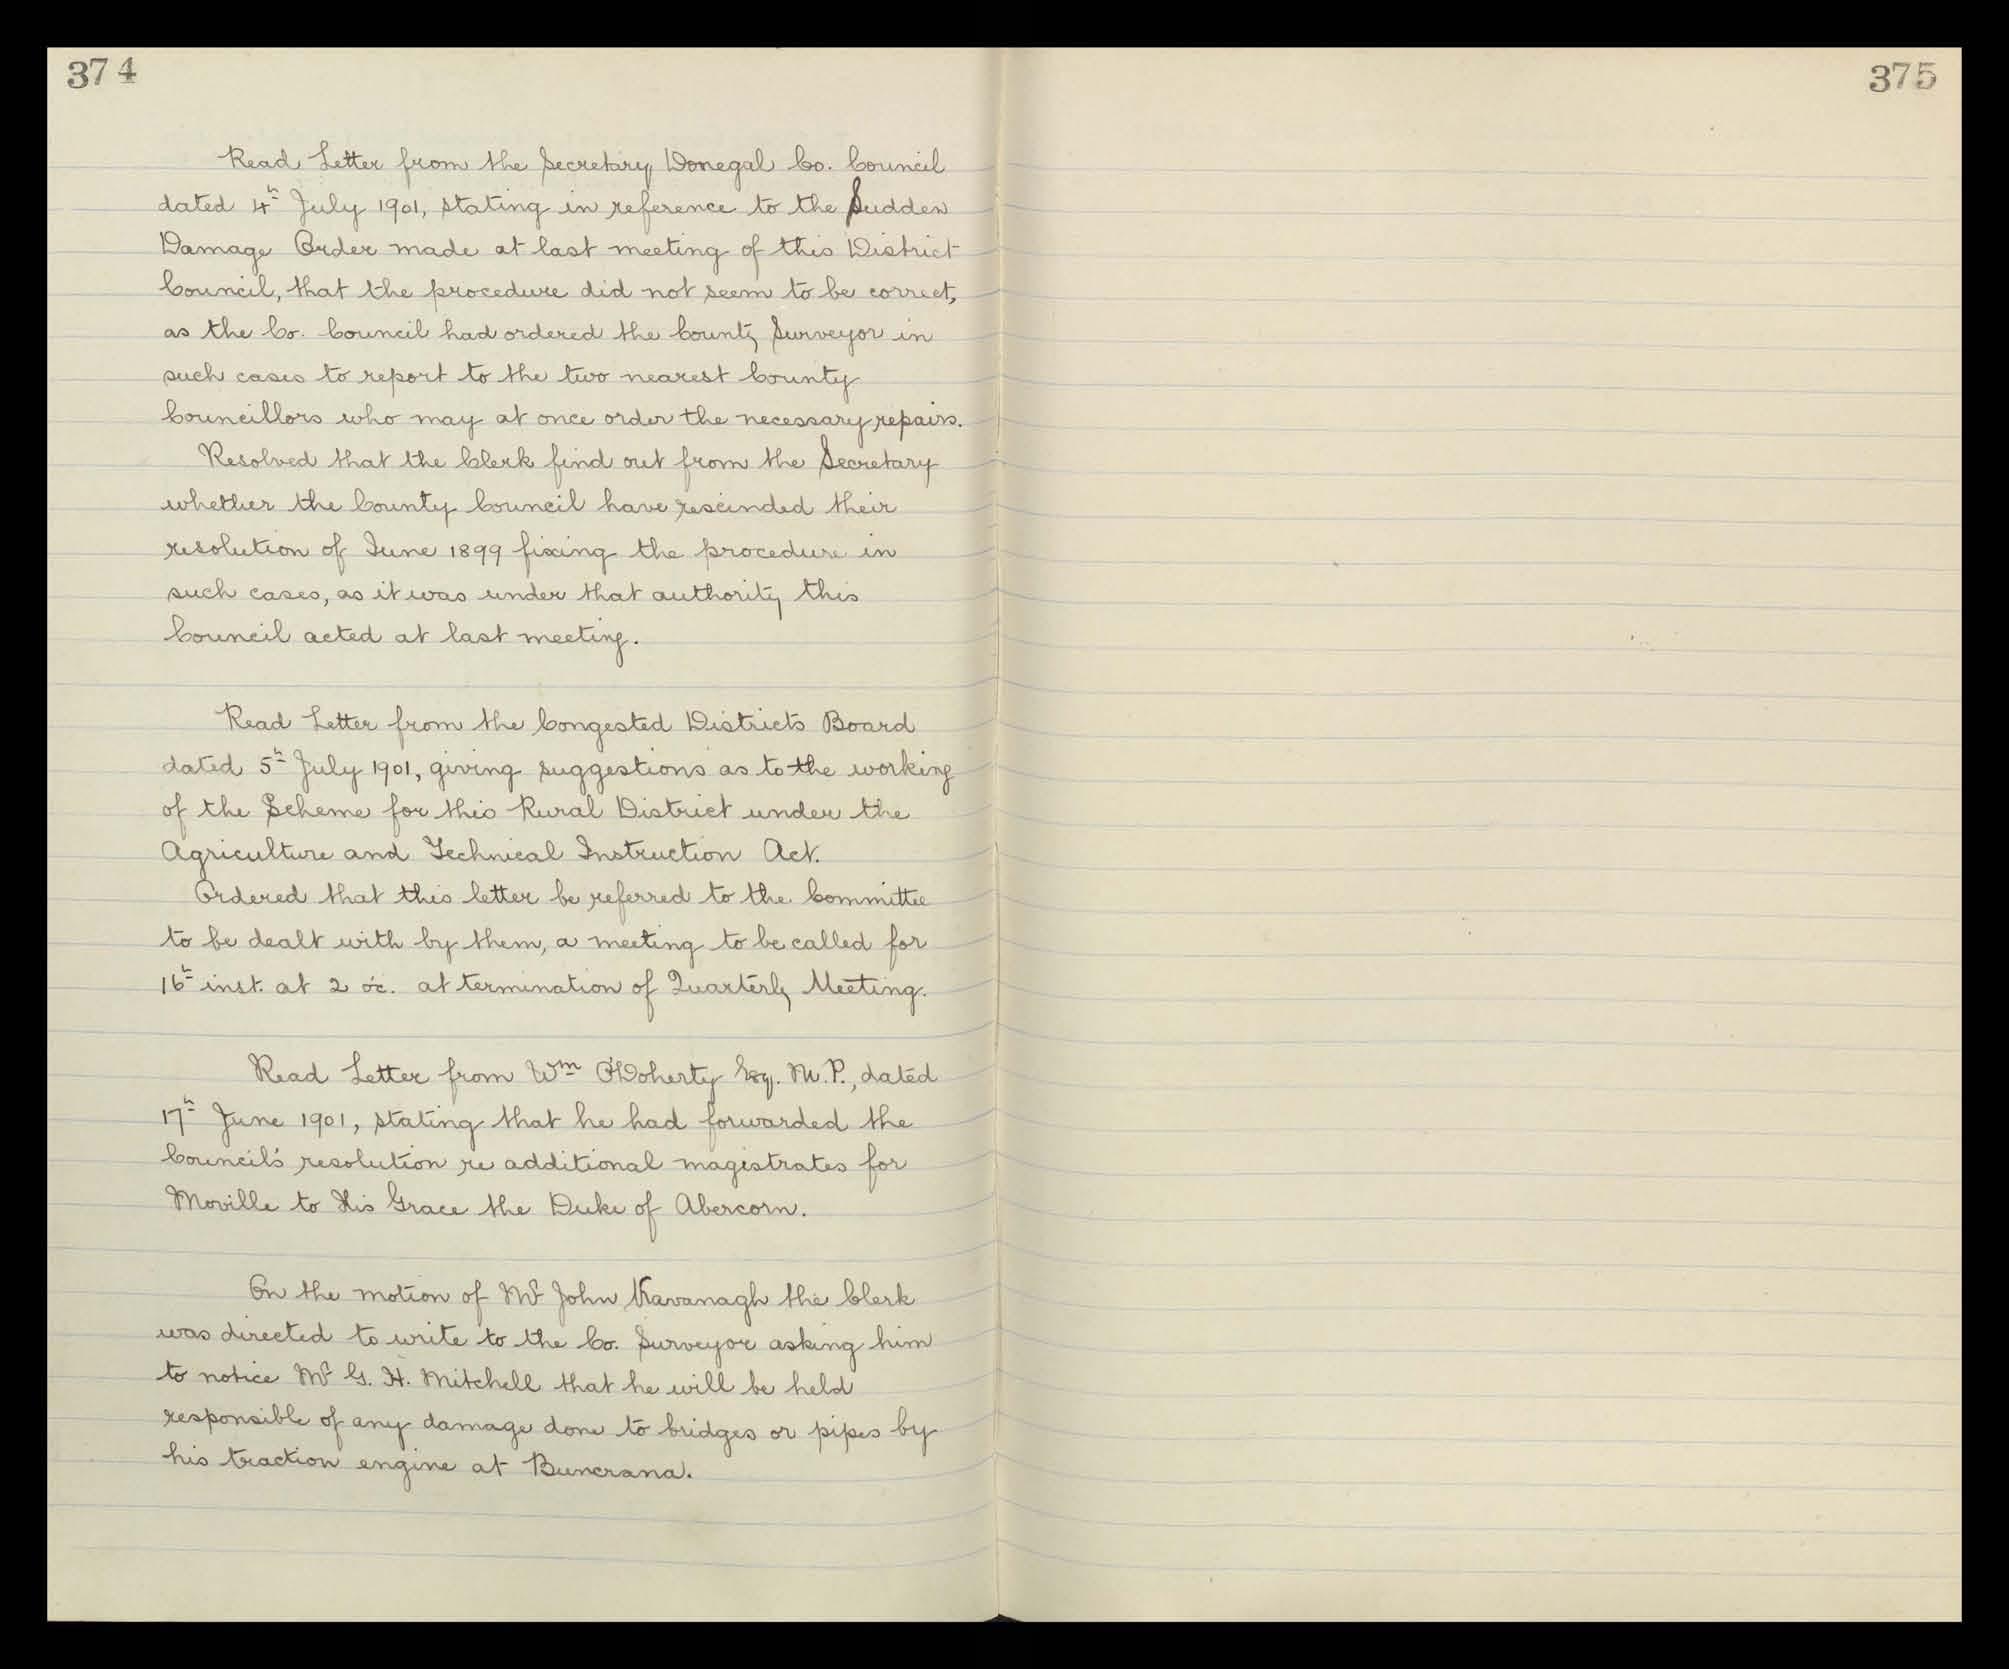 374
375
Read Letter from the Secretary Donegal Co. Council
dated 4th July 1901, stating in reference to the Sudden
Damage Order made at last meeting of this District
Council, that the procedure did not seem to be correct,
as the Co. Council had ordered the County Surveyor in
such cases to report to the two nearest County
Councillors who may at once order the necessary repairs.
Resolved that the Clerk find out from the Secretary
whether the County Council have rescinded their
resolution of June 1899 fixing the procedure in
such cases, as it was under that authority this
Council acted at last meeting.
Read Letter from the Congested Districts Board
dated 5th July 1901, giving suggestions as to the working
of the Scheme for this Rural District under the
Agriculture and Technical Instruction Act.
Ordered that this letter be referred to the Committee
to be dealt with by them, a meeting to be called for
16th inst. at 2 o'c. at termination of Quarterly Meeting.
Read Letter from Wm O'Doherty Esq. M.P., dated
17th June 1901, stating that he had forwarded the
Council's resolution re additional magistrates for
Moville to His Grace the Duke of Abercorn.
On the motion of Mr John Kavanagh the Clerk
was directed to write to the Co. Surveyor asking him
to notice Mr G. H. Mitchell that he will be held
responsible of any damage done to bridges or pipes by
his traction engine at Buncrana.